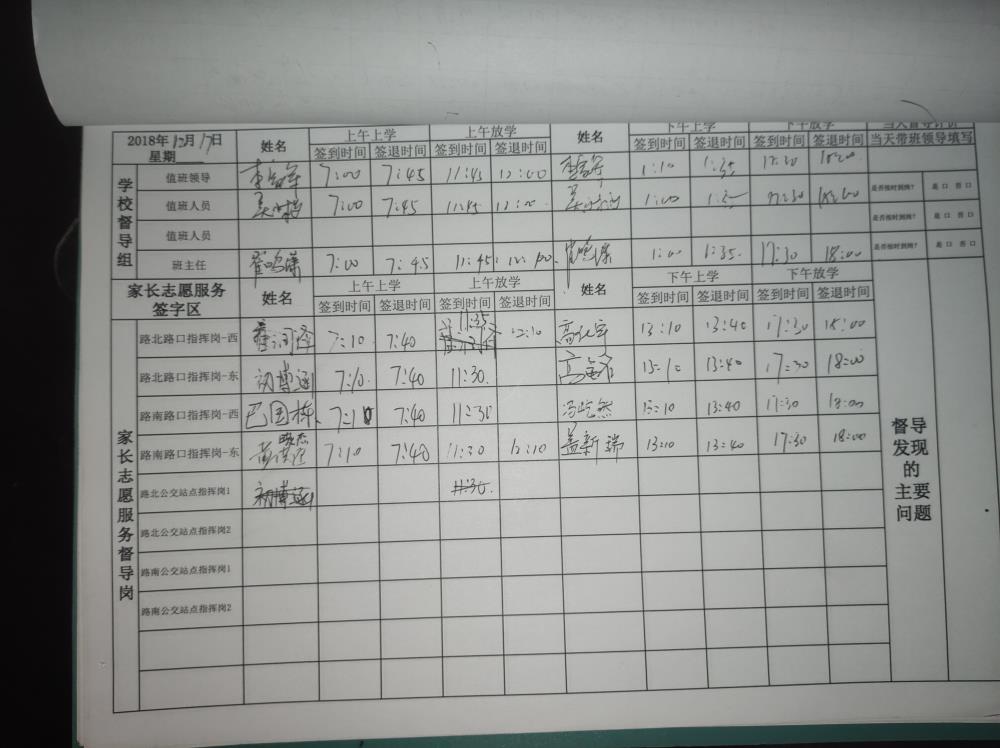 2018年12月17日 姓名 上午上学 上午放学 姓名 下午上学 下午放学
星期 签到时间 签退时间 签到时间 签退时间 签到时间 签退时间 签到时间 签退时间 当天带班领导填写
学校督导组
值班领导 7:00 7:45 11:45 12:00 1:10 1:35 17:30 18:00
值班人员 7:00 7:45 11:45 12:00 1:00 17:30 18:00 是否按时到岗? 是口 否口
值班人员 是否按时到岗? 是口 否口
班主任 7:00 7:45 11:45 12:00 1:00 1:35 17:30 18:00 是否按时到岗? 是口 否口
家长志愿服务 姓名 上午上学 上午放学 姓名 下午上学 下午放学
签字区 签到时间 签退时间 签到时间 签退时间 签到时间 签退时间 签到时间 签退时间
家长志愿服务督导岗
路北路口指挥岗-西 7:10 7:40 11:35 12:10 13:10 13:40 17:30 18:00
路北路口指挥岗-东 初博涵 7:10 7:40 11:30 13:10 13:40 17:30 18:00
路南路口指挥岗-西 巴国栋 7:10 7:40 11:30 冯屹然 13:10 13:40 17:30 18:00
路南路口指挥岗-东 7:10 7:40 11:30 12:10 盖新瑞 13:10 13:40 17:30 18:00
路北公交站点指挥岗1 初博涵 11:30
路北公交站点指挥岗2
路南公交站点指挥岗1
路南公交站点指挥岗2
督导
发现
的
主要
问题